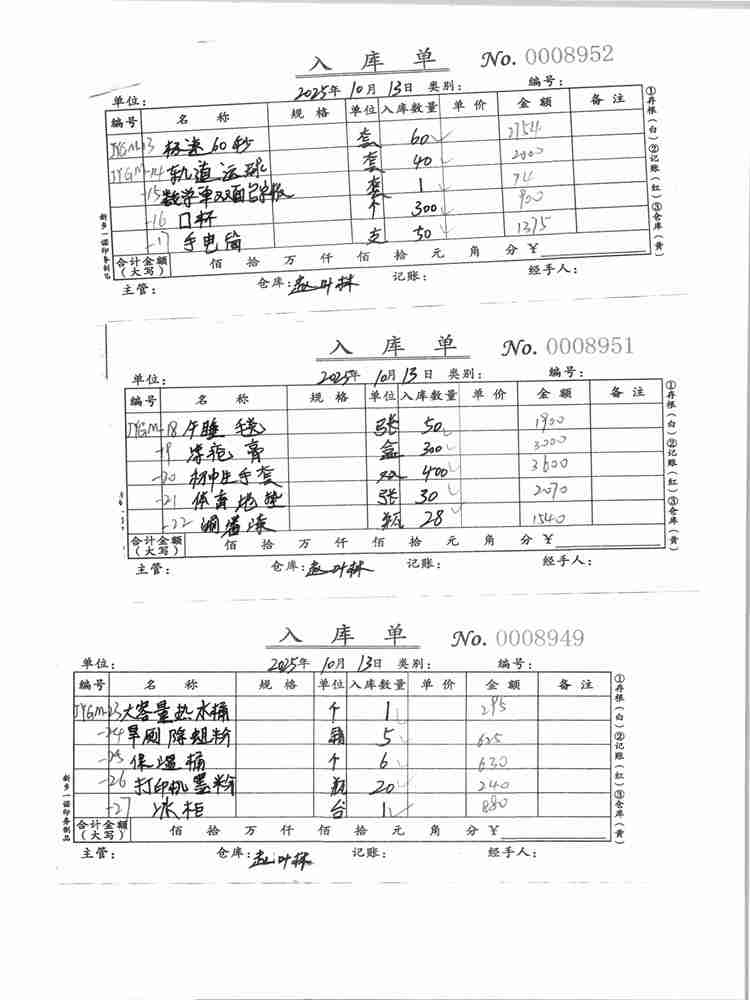 入 库 单 No. 0008952
单位: 2025年 10月 13日 类别: 编号:
编号 名 称 规 格 单位 入库数量 单 价 金 额 备 注
JYGM-13 极速60秒 套 60 2754
JYGM-14 轨道运球 套 40 2000
-15 数学单双面 套 1 74
-16 口杯 个 300 900
-17 手电筒 支 50 1375
合计金额(大写) 佰 拾 万 仟 佰 拾 元 角 分 ¥
主管: 仓库: 赵叶林 记账: 经手人:
①存根(白)②记账(红)③仓库(黄)
新乡一诺印务制品
入 库 单 No. 0008951
单位: 2025年 10月 13日 类别: 编号:
编号 名 称 规 格 单位 入库数量 单 价 金 额 备 注
JYGM-18 午睡毯 张 50 1900
-19 冻疮膏 盒 300 3000
-20 初中生手套 双 400 3600
-21 体育地垫 张 30 2070
-22 润唇 瓶 28 1540
合计金额(大写) 佰 拾 万 仟 佰 拾 元 角 分 ¥
主管: 仓库: 赵叶林 记账: 经手人:
①存根(白)②记账(红)③仓库(黄)
入 库 单 No. 0008949
单位: 2025年 10月 13日 类别: 编号:
编号 名 称 规 格 单位 入库数量 单 价 金 额 备 注
JYGM-23 大容量热水桶 个 1 295
-24 旱厕除蛆粉 箱 5 625
-25 保温桶 个 6 630
-26 打印机墨粉 瓶 20 240
-27 冰柜 台 1 880
合计金额(大写) 佰 拾 万 仟 佰 拾 元 角 分 ¥
主管: 仓库: 赵叶林 记账: 经手人:
①存根(白)②记账(红)③仓库(黄)
新乡一诺印务制品